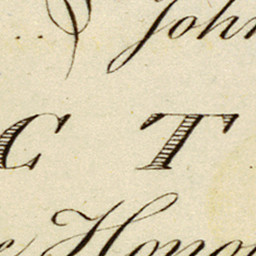 John
C T
Hono